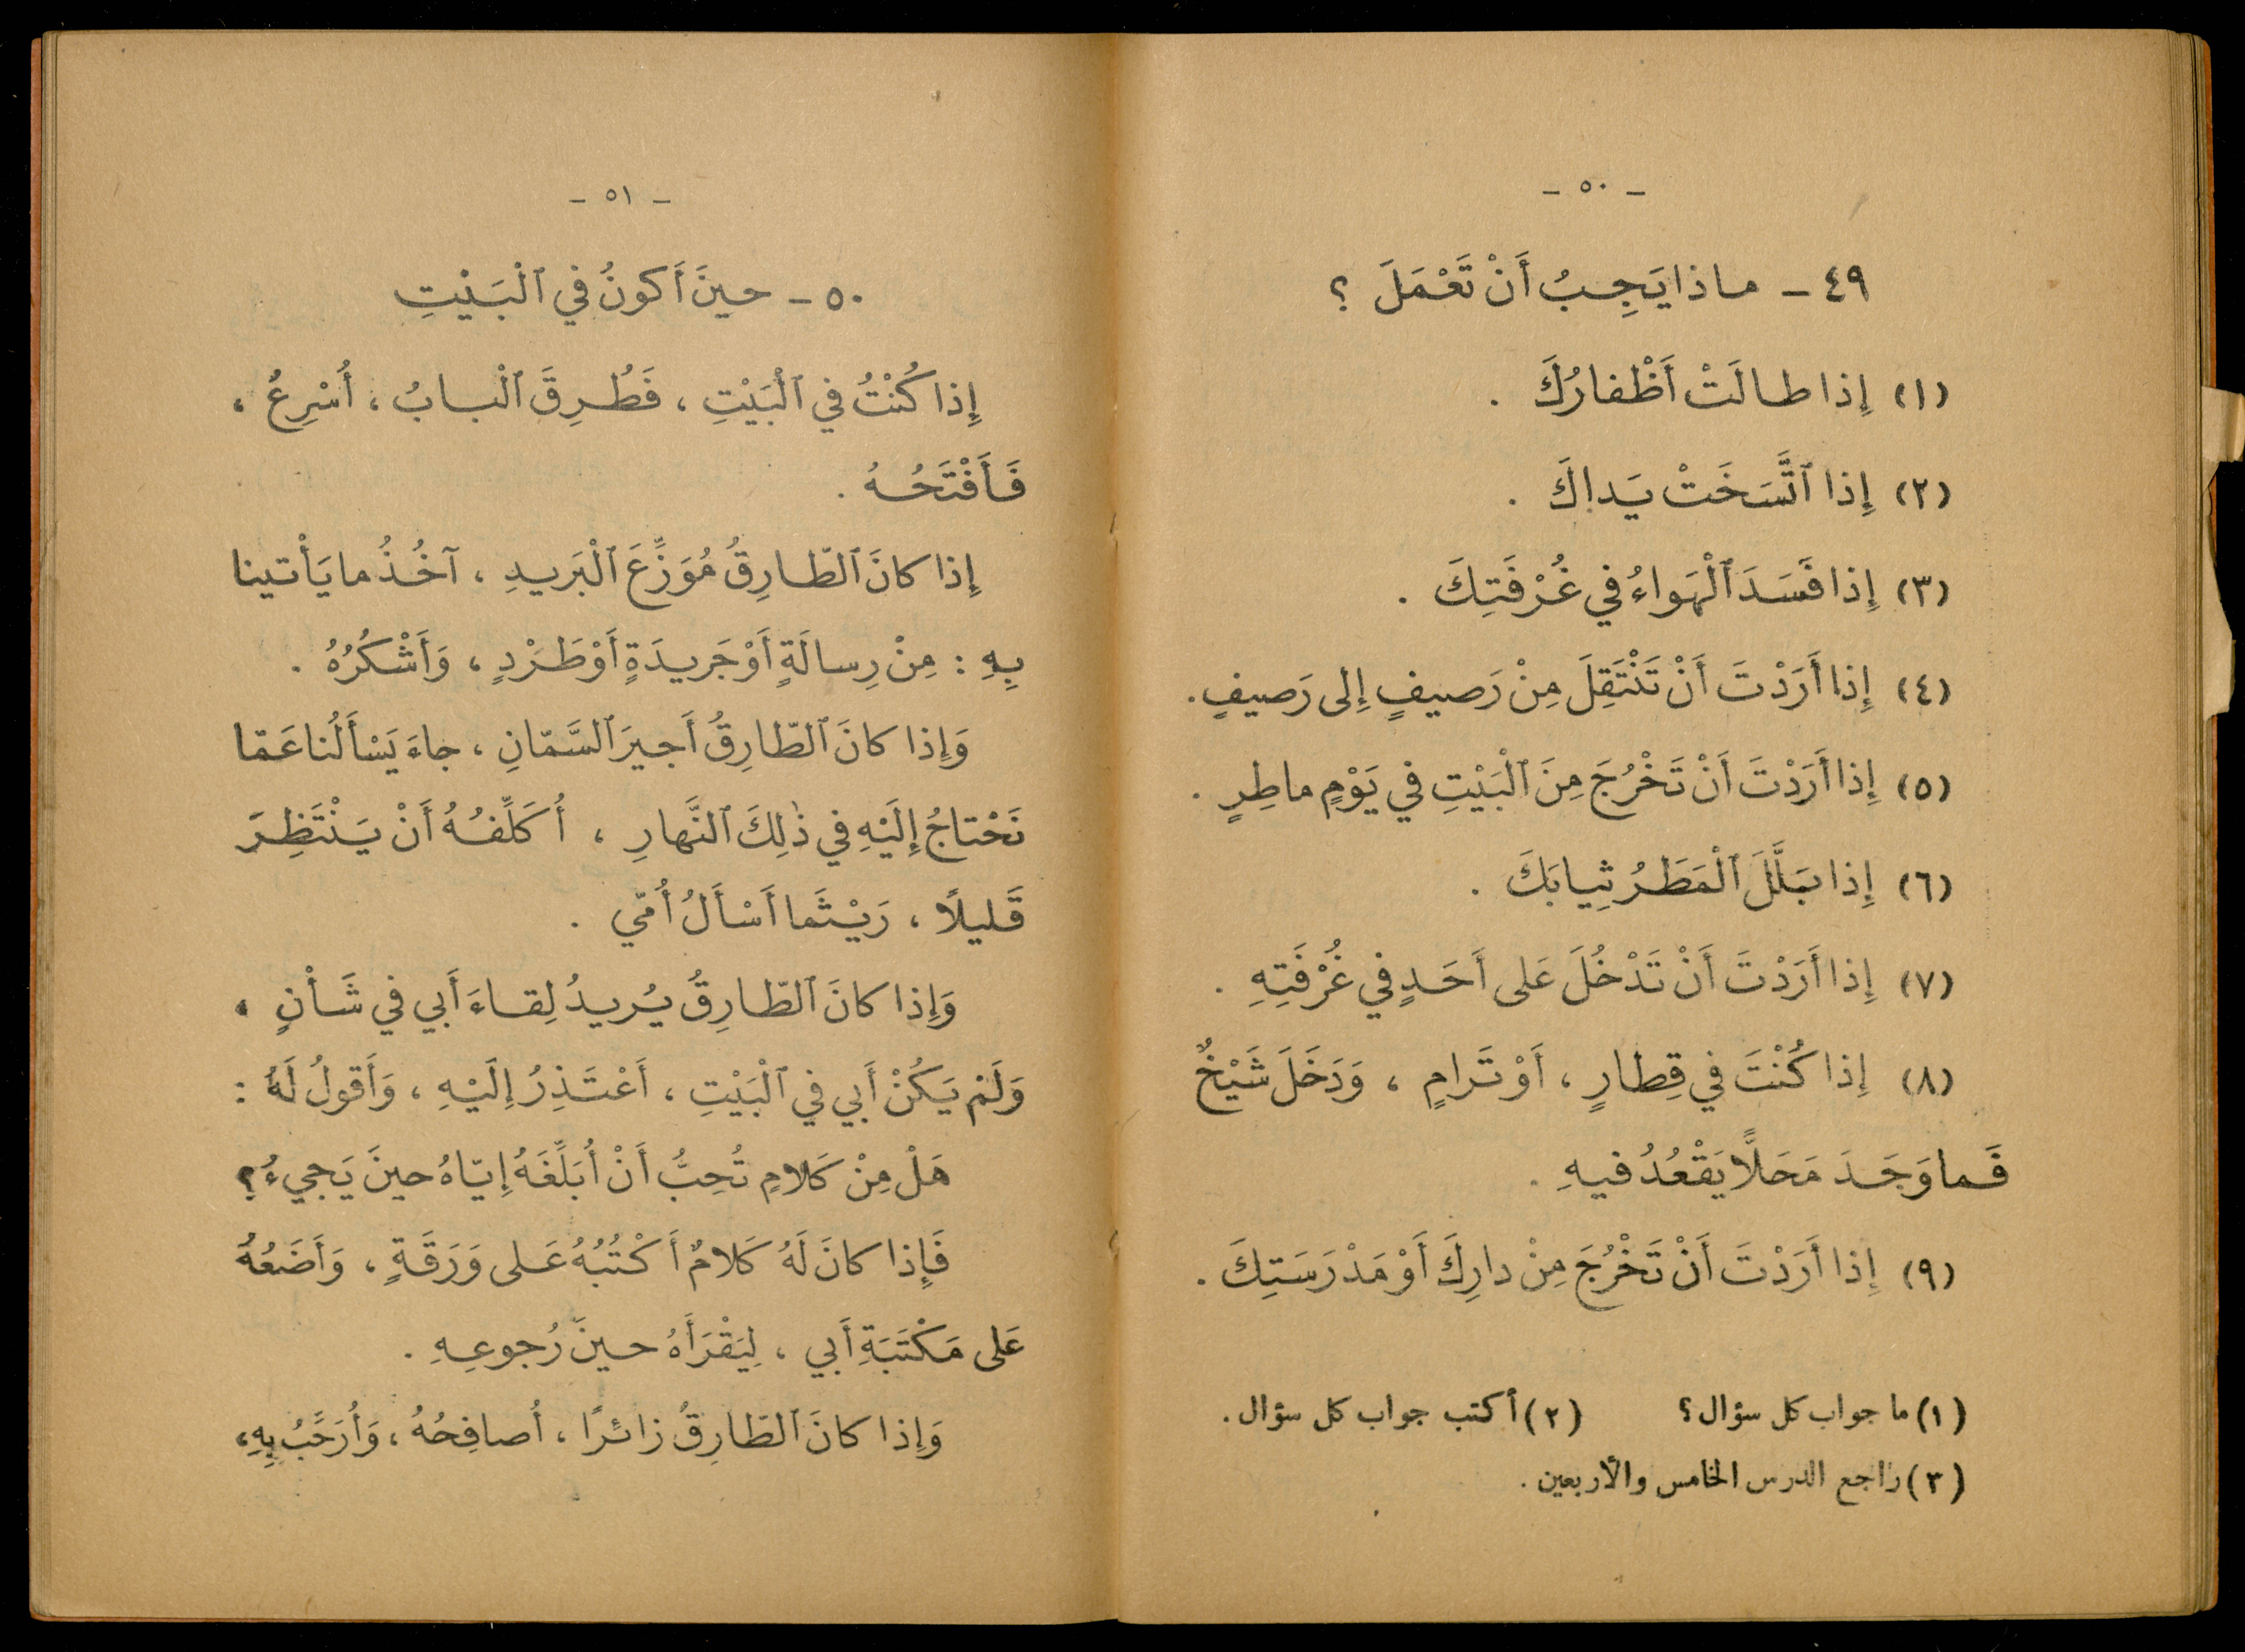 - ٥٠ -
٤٩ - ماذا يَجِبُ أَنْ تَعْمَلَ ؟
(١) إِذا طالَتْ أَظْفارُكَ .
(٢) إِذا ٱتَّسَخَتْ يَداكَ .
(٣) إِذا فَسَدَ ٱلْهَواءُ في غُرْفَتِكَ .
(٤) إِذا أَرَدْتَ أَنْ تَنْتَقِلَ مِنْ رَصيفٍ إِلى رَصيفٍ .
(٥) إِذا أَرَدْتَ أَنْ تَخْرُجَ مِنَ ٱلْبَيْتِ في يَوْمٍ ماطِرٍ .
(٦) إِذا بَلَّلَ ٱلْمَطَرُ ثِيابَكَ .
(٧) إِذا أَرَدْتَ أَنْ تَدْخُلَ عَلى أَحَدٍ في غُرْفَتِهِ .
(٨) إِذا كُنْتَ في قِطارٍ ، أَوْ تَرامٍ ، وَدَخَلَ شَيْخٌ
فَما وَجَدَ مَحَلًّا يَقْعُدُ فيهِ .
(٩) إِذا أَرَدْتَ أَنْ تَخْرُجَ مِنْ دارِكَ أَوْ مَدْرَسَتِكَ .
(١) ما جواب كل سؤال ؟ (٢) أكتب جواب كل سؤال .
(٣) راجع الدرس الخامس والأربعين .
- ٥١ -
٥٠ - حينَ أَكونُ في ٱلْبَيْتِ
إِذا كُنْتُ في ٱلْبَيْتِ ، فَطُرِقَ ٱلْبابُ ، أُسْرِعُ ،
فَأَفْتَحُهُ .
إِذا كانَ ٱلطّارِقُ مُوَزِّعَ ٱلْبَريدِ ، آخُذُ ما يَأْتينا
بِهِ : مِنْ رِسالَةٍ أَوْ جَريدَةٍ أَوْ طَرْدٍ ، وَأَشْكُرُهُ .
وَإِذا كانَ ٱلطّارِقُ أَجيرَ ٱلسَّمّانِ ، جاءَ يَسْأَلُنا عَمّا
نَحْتاجُ إِلَيْهِ في ذٰلِكَ ٱلنَّهارِ ، أُكَلِّفُهُ أَنْ يَنْتَظِرَ
قَليلًا ، رَيْثَما أَسْأَلُ أُمّي .
وَإِذا كانَ ٱلطّارِقُ يُريدُ لِقاءَ أَبي في شَأْنٍ ،
وَلَمْ يَكُنْ أَبي في ٱلْبَيْتِ ، أَعْتَذِرُ إِلَيْهِ ، وَأَقولُ لَهُ :
هَلْ مِنْ كَلامٍ تُحِبُّ أَنْ أُبَلِّغَهُ إِيّاهُ حينَ يَجيءُ ؟
فَإِذا كانَ لَهُ كَلامٌ أَكْتُبُهُ عَلى وَرَقَةٍ ، وَأَضَعُهُ
عَلى مَكْتَبَةِ أَبي ، لِيَقْرَأَهُ حينَ رُجوعِهِ .
وَإِذا كانَ ٱلطّارِقُ زائرًا ، أُصافِحُهُ ، وَأُرَحِّبُ بِهِ ،